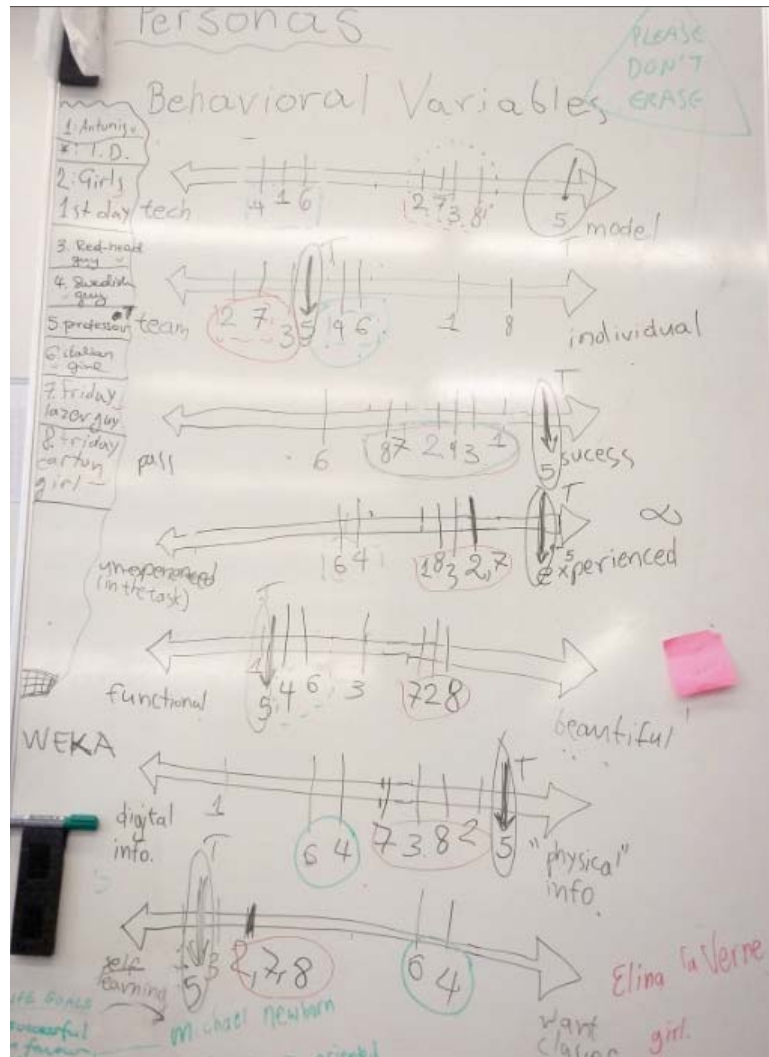 Personas
PLEASE
DON'T
ERASE
Behavioral Variables
1. Antunis
*: I.D.
2. Girls
1st day
3. Red-head
guy
4. Swedish
guy
5. professor T
6. italian
girl
7. friday
lazer guy
8. friday
cartun
girl
tech
4 1 6 2 7 3 8 5
model
T
T
team
2 7 3 5 4 6 1 8
individual
T
pass
6 8 7 2 4 3 1 5
sucess
T
∞
unexperienced
(in the task)
6 4 1 8 3 2,7
experienced
T
functional
1 5 4 6 3 7 2 8
beautiful
WEKA
T
digital
info.
1 6 4 7 3 8 2 5
"physical"
info
T
self
learning
5 3 2,7,8 6 4
want
Elina la Verne
girl.
GOALS
successful
Michael newborn
oriented